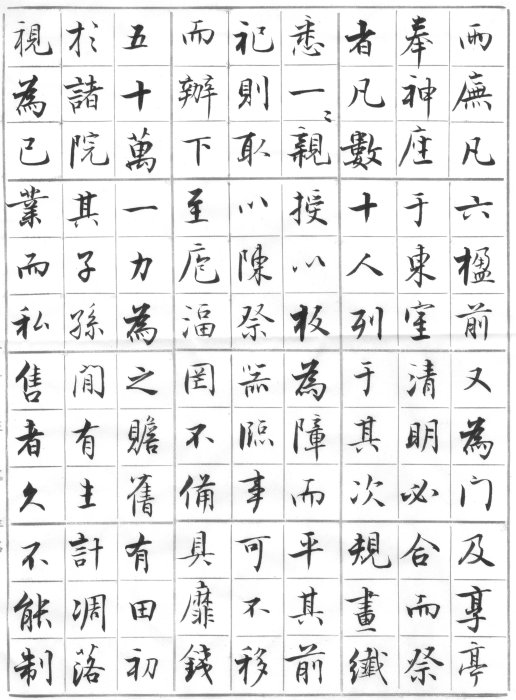 兩廡凡六楹前又為门及享亭
奉神座于東室清明必合而祭
者凡數十人列于其次規畫纖
悉一〻親授以板為障而平其前
祀則取以陳祭器臨事可不移
而辦下至庖湢罔不備具靡錢
五十萬一力為之贍舊有田初
於諸院其子孫閒有主計凋落
視為已業而私售者久不能制